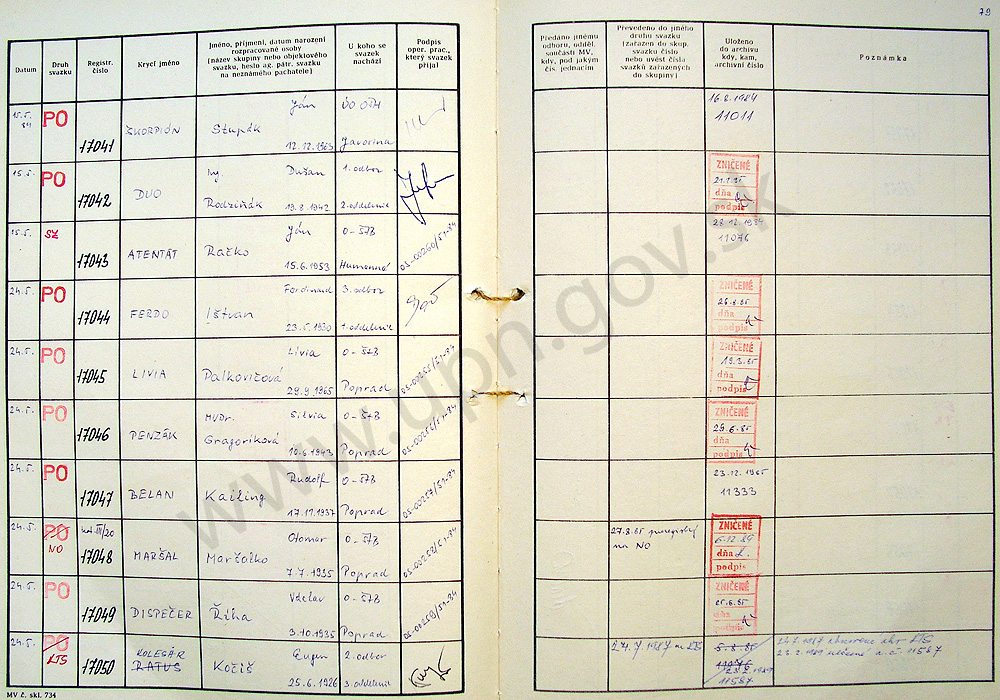 79
Datum
Druh svazku
Registr. číslo
Krycí jméno
Jméno, příjmení, datum narození rozpracované osoby (název skupiny nebo objektového svazku, heslo ag. pátr. svazku na neznámého pachatele)
U koho se svazek nachází
Podpis oper. prac., který svazek přijal
Předáno jinému odboru, odděl. součásti MV, kdy, pod jakým čís. jednacím
Převedeno do jiného druhu svazku (zařazen do skup. svazku číslo nebo uvést čísla svazků zařazených do skupiny)
Uloženo do archivu kdy, kam, archivní číslo
Poznámka
15.5. 84 PO 17041 ŠKORPIÓN Ján Stupák 12.12.1963 Javorina
16.8.1984 11011
15.5. PO 17042 DUO Ing Dušan Rodziňák 19.8.1942 1. odbor 2. oddelenie
ZNIČENÉ dňa podpis
15.5. SZ 17043 ATENTÁT Ján Račko 15.6.1953 O-ŠTB Humenné OS-00260/51-84
28.12.1984 11076
24.5. PO 17044 FERDO Ferdinand Ištvan 23.5.1930 3. odbor 1. oddelenie
ZNIČENÉ dňa podpis
24.5. PO 17045 LIVIA Lívia Palkovičová 29.9.1965 O-ŠTB Poprad OS-00255/51-84
ZNIČENÉ dňa podpis
24.5. PO 17046 PENZÁK MVDr. Silvia Gragoriková 10.6.1943 O-ŠTB Poprad OS-00256/51-84
ZNIČENÉ dňa podpis
24.5. PO 17047 BELAN Rudolf Kailing 17.11.1937 O-ŠTB Poprad OS-00257/51-84
23.12.1985 11333
24.5. PO NO 17048 MARŠAL Otomar Marčalko 7.7.1935 O-ŠTB Poprad OS-00258/51-84
27.8.85 na NO
ZNIČENÉ dňa podpis
24.5. PO 17049 DISPEČER Václav Říha 3.10.1935 O-ŠTB Poprad OS-00259/51-84
ZNIČENÉ dňa podpis
24.5. PO KTS 17050 KOLESÁR RATUS Eugen Kočiš 25.6.1926 2. odbor 3. oddelenie
24.7.1987 na KTS
11587
MV č. skl. 734
www.upn.gov.sk